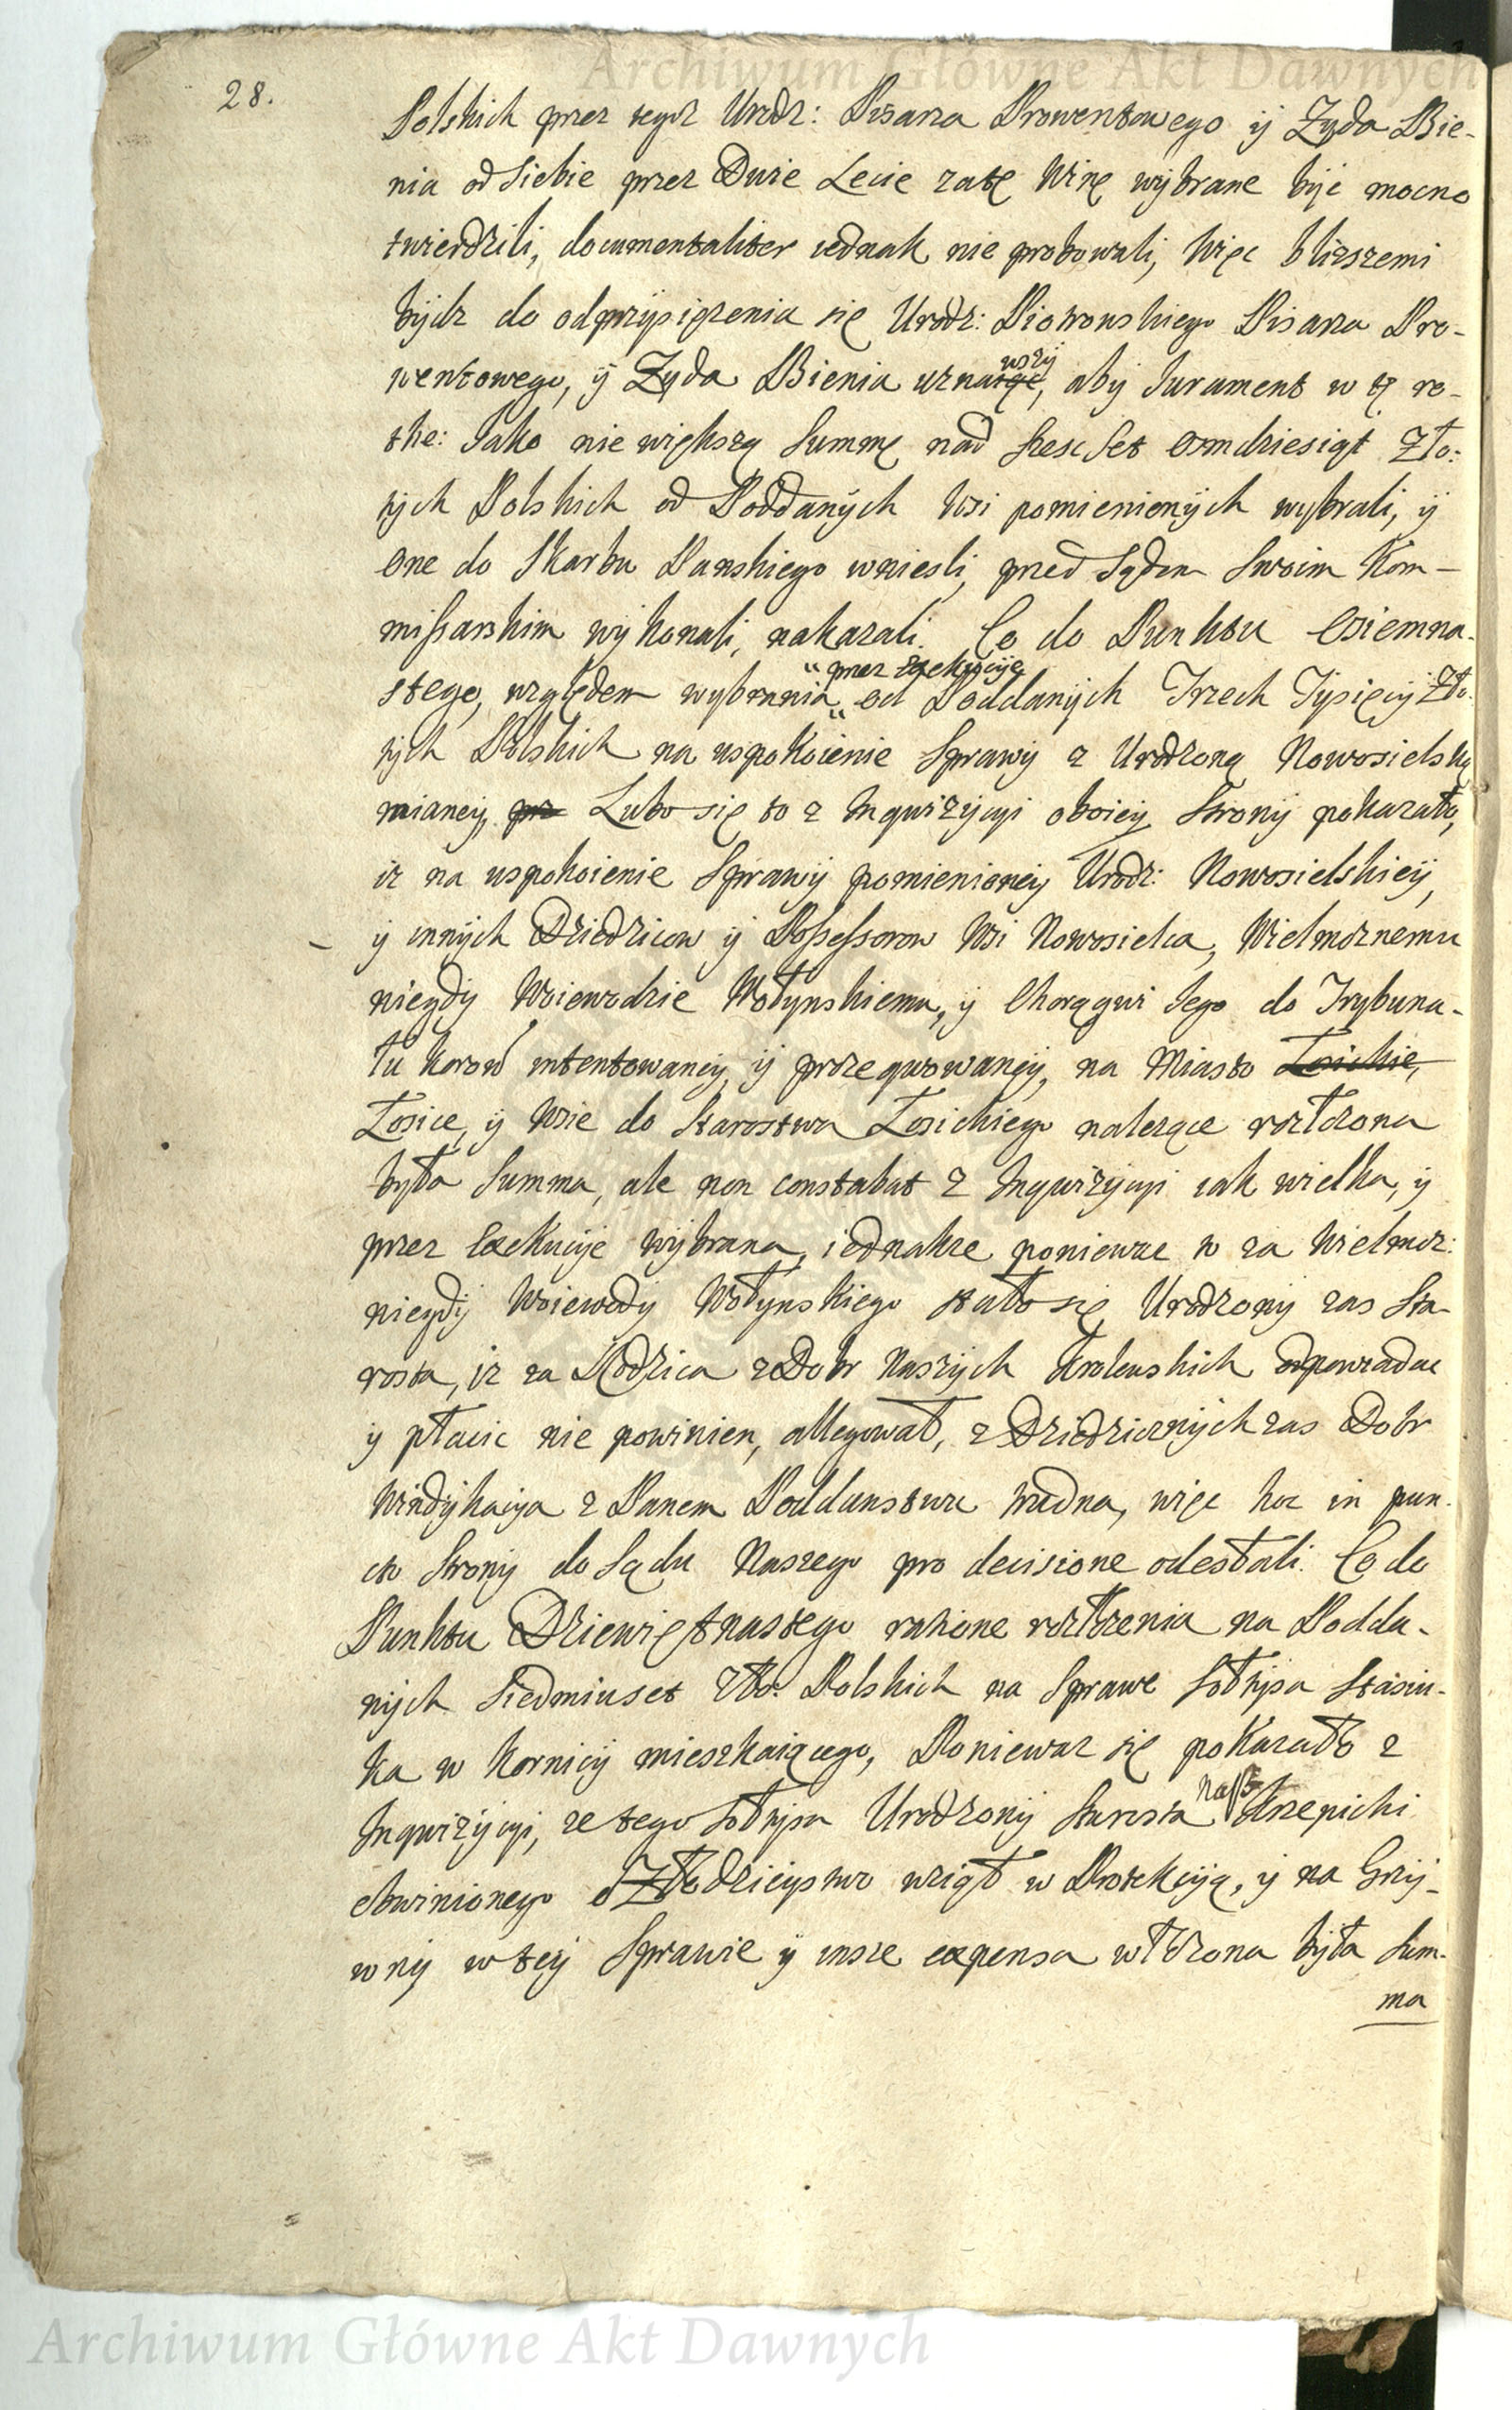 Archiwum Główne Akt Dawnych
28.
Polskich przez tegoż Urodz: Pisarza Prowentowego ÿ Zyda Bie-
nia od siebie przez Dwie Lecie zatę Winę wÿbrane bÿc mocno
twierdzili, documentaliter iednak nie probowali, więc bliszszemi
bÿdz do odprzÿsięzenia się Urodz: Piotrowskiego Pisarza Pro-
wentowego, ÿ Zyda Bienia uznaiąc, wszÿ abÿ Jurament w tę ro-
thę: Jako nie większą Summę nad szesc set osmdziesiąt Zło:
tÿch Polskich od Poddanÿch Wsi pomienionÿch wÿbrali, ÿ
one do Skarbu Panskiego wniesli, przed Sądem Swoim Kom-
missarskim wÿkonali, nakazali. Co do Punktu Osiemna-
stego, względem wybrania „przez Exekucÿię„ od Poddanÿch Trzech Tÿsięcÿ Zło-
tÿch Polskich na uspokoienie Sprawÿ z Urodzoną Nowosielską
mianeÿ, prz Lubo się to z Inqwizÿcyi oboieÿ Stronÿ pokazało,
iz na uspokoienie Sprawÿ pomienioneÿ Urodz: Nowosielskieÿ,
ÿ innÿch Dziedzicow ÿ Possessorow Wsi Nowosielca, Wielmoznemu
niegdÿ Woiewodzie Wołynskiemu, ÿ Chorągwi Jego do Trybuna-
łu Koroń intentowaneÿ, ÿ prozeqwowaneÿ, na Miasto Łosickie,
Łosice, ÿ Wsie do Starostwa Łosickiego nalezące rozłozona
była Summa, ale non constabat z Inqwizÿcyi iak wielka, ÿ
przez Exekucÿię wÿbrana, iednakze poniewaz to za Wielmoz:
niegdÿ Woiewodÿ Wołynskiego stało się, Urodzonÿ zas Sta-
rosta, iz za Rodzica z Dobr Naszÿch Krolewskich odpowiadac
ÿ płacic nie powinien, allegował, z Dziedzicznÿch zas Dobr
Windÿkacÿa z Panem Poddanstwu trudna, więc hoc in pun-
cto Stronÿ do Sądu Naszego pro decisione odesłali. Co do
Punktu Dziewiętnastego ratione rozłozenia na Podda-
nÿch Siedmiuset Zło: Polskich na Sprawe Sołtysa Stasiu-
ka w Kornicÿ mieszkaiącego, Poniewaz się pokazało z
Inqwizÿcyi, ze tego Sołtysa Urodzonÿ Starosta Nasz Krzepicki
obwinionego o Złodzieÿstwo wziął w Protekcÿią, ÿ na Grzÿ-
wnÿ w teÿ Sprawie ÿ insze expensa włozona bÿła Sum-
ma
Archiwum Główne Akt Dawnych